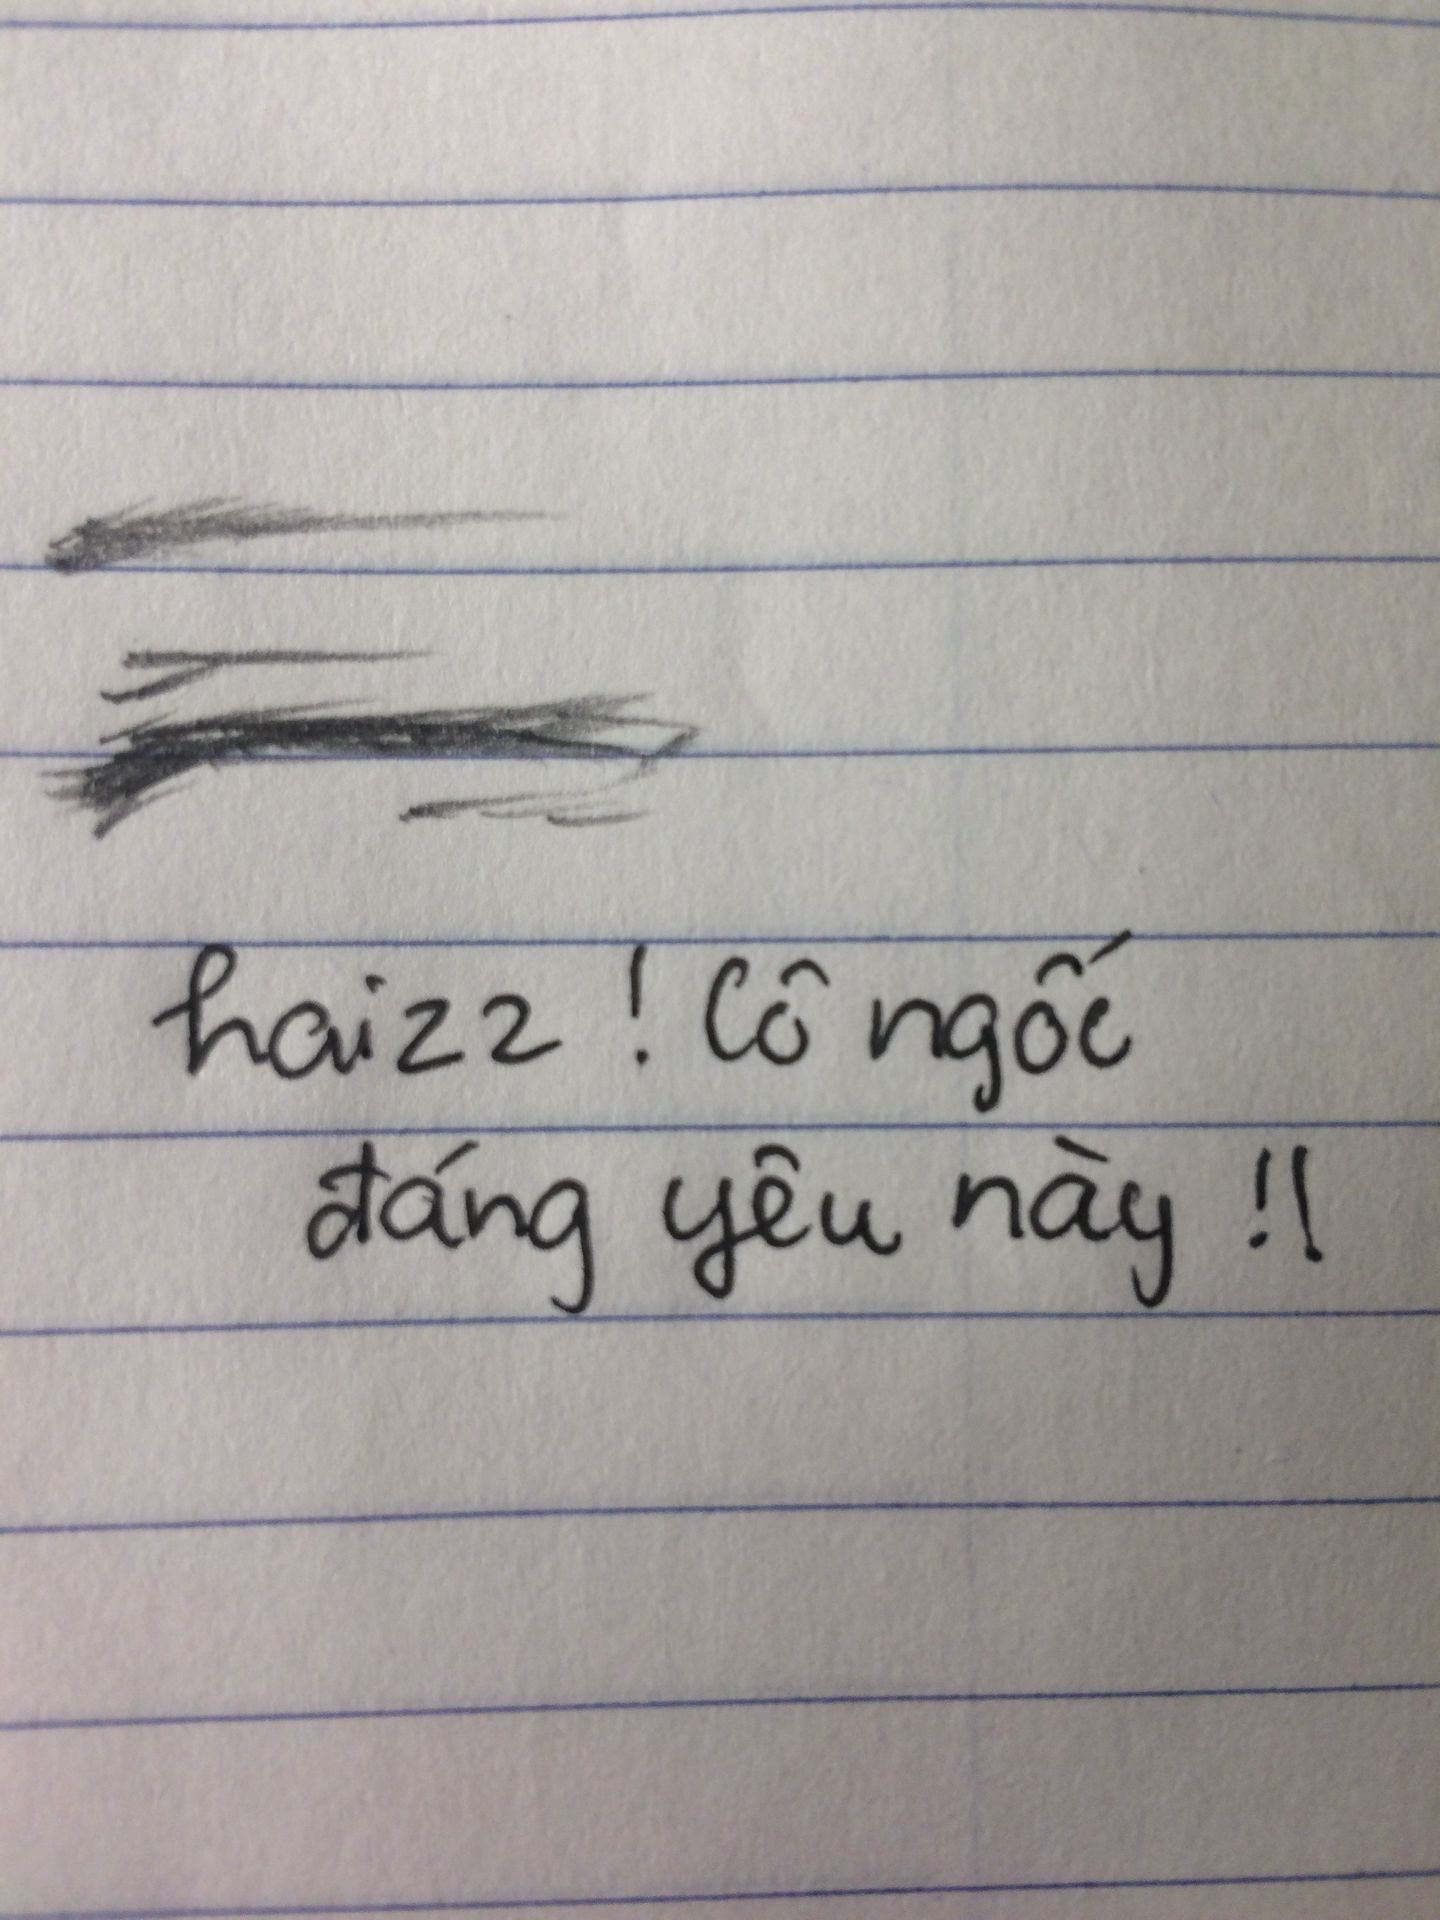 haizz ! Cô ngốc
đáng yêu này !!